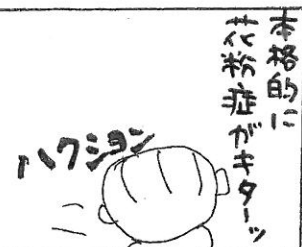 本格的に
花粉症がキターッ
ハクション